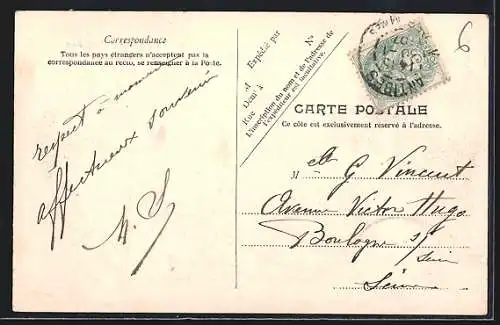 Correspondance
Tous les pays étrangers n'acceptent pas la
correspondance au recto, se renseigner à la Poste.
respect à maman
affectueux souvenir
M. S
Expédié par
M
Demt à
Rue
N°
L'inscription du nom et de l'adresse de
l'expéditeur est facultative.
6
CARTE POSTALE
Ce côté est exclusivement réservé à l'adresse.
M
G Vincent
Avenue Victor Hugo
Boulogne s/
Seine
Seine